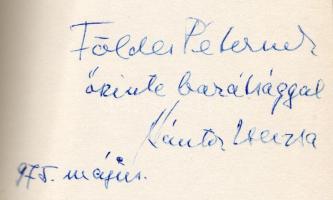 Földes Péternek
őszinte barátsággal
Kántor Zsuzsa
975. május.